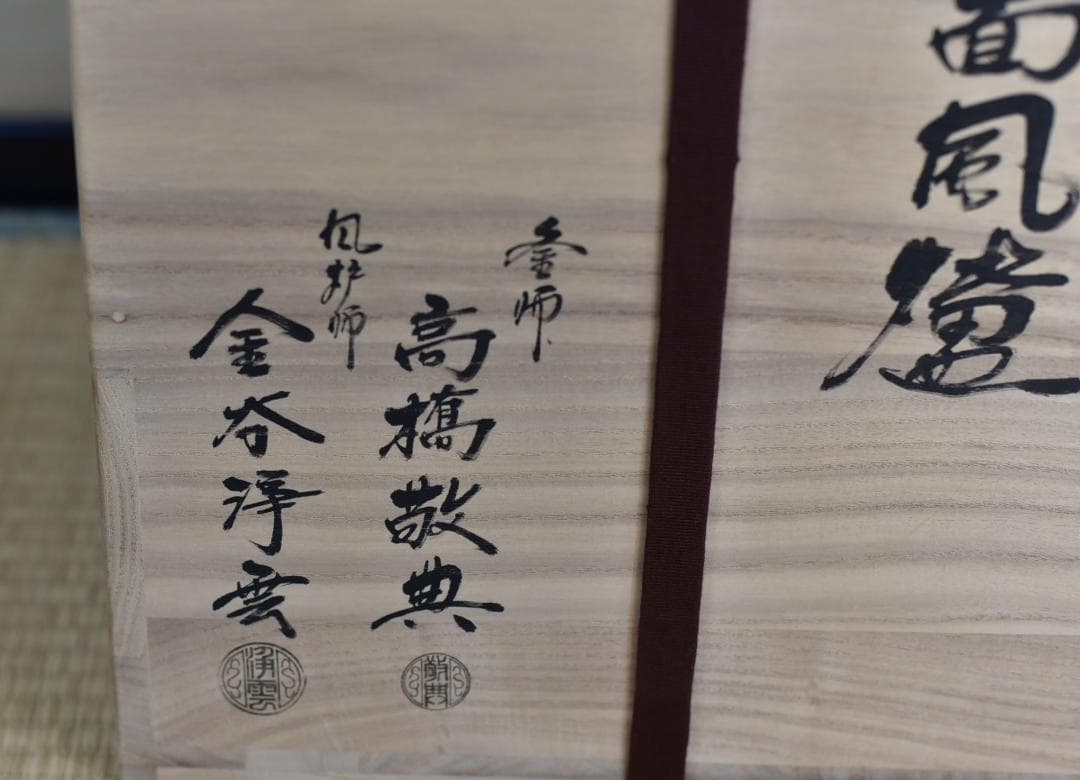 面風爐
釜师
高橋敬典
敬典
风炉师
金谷浄雲
浄雲